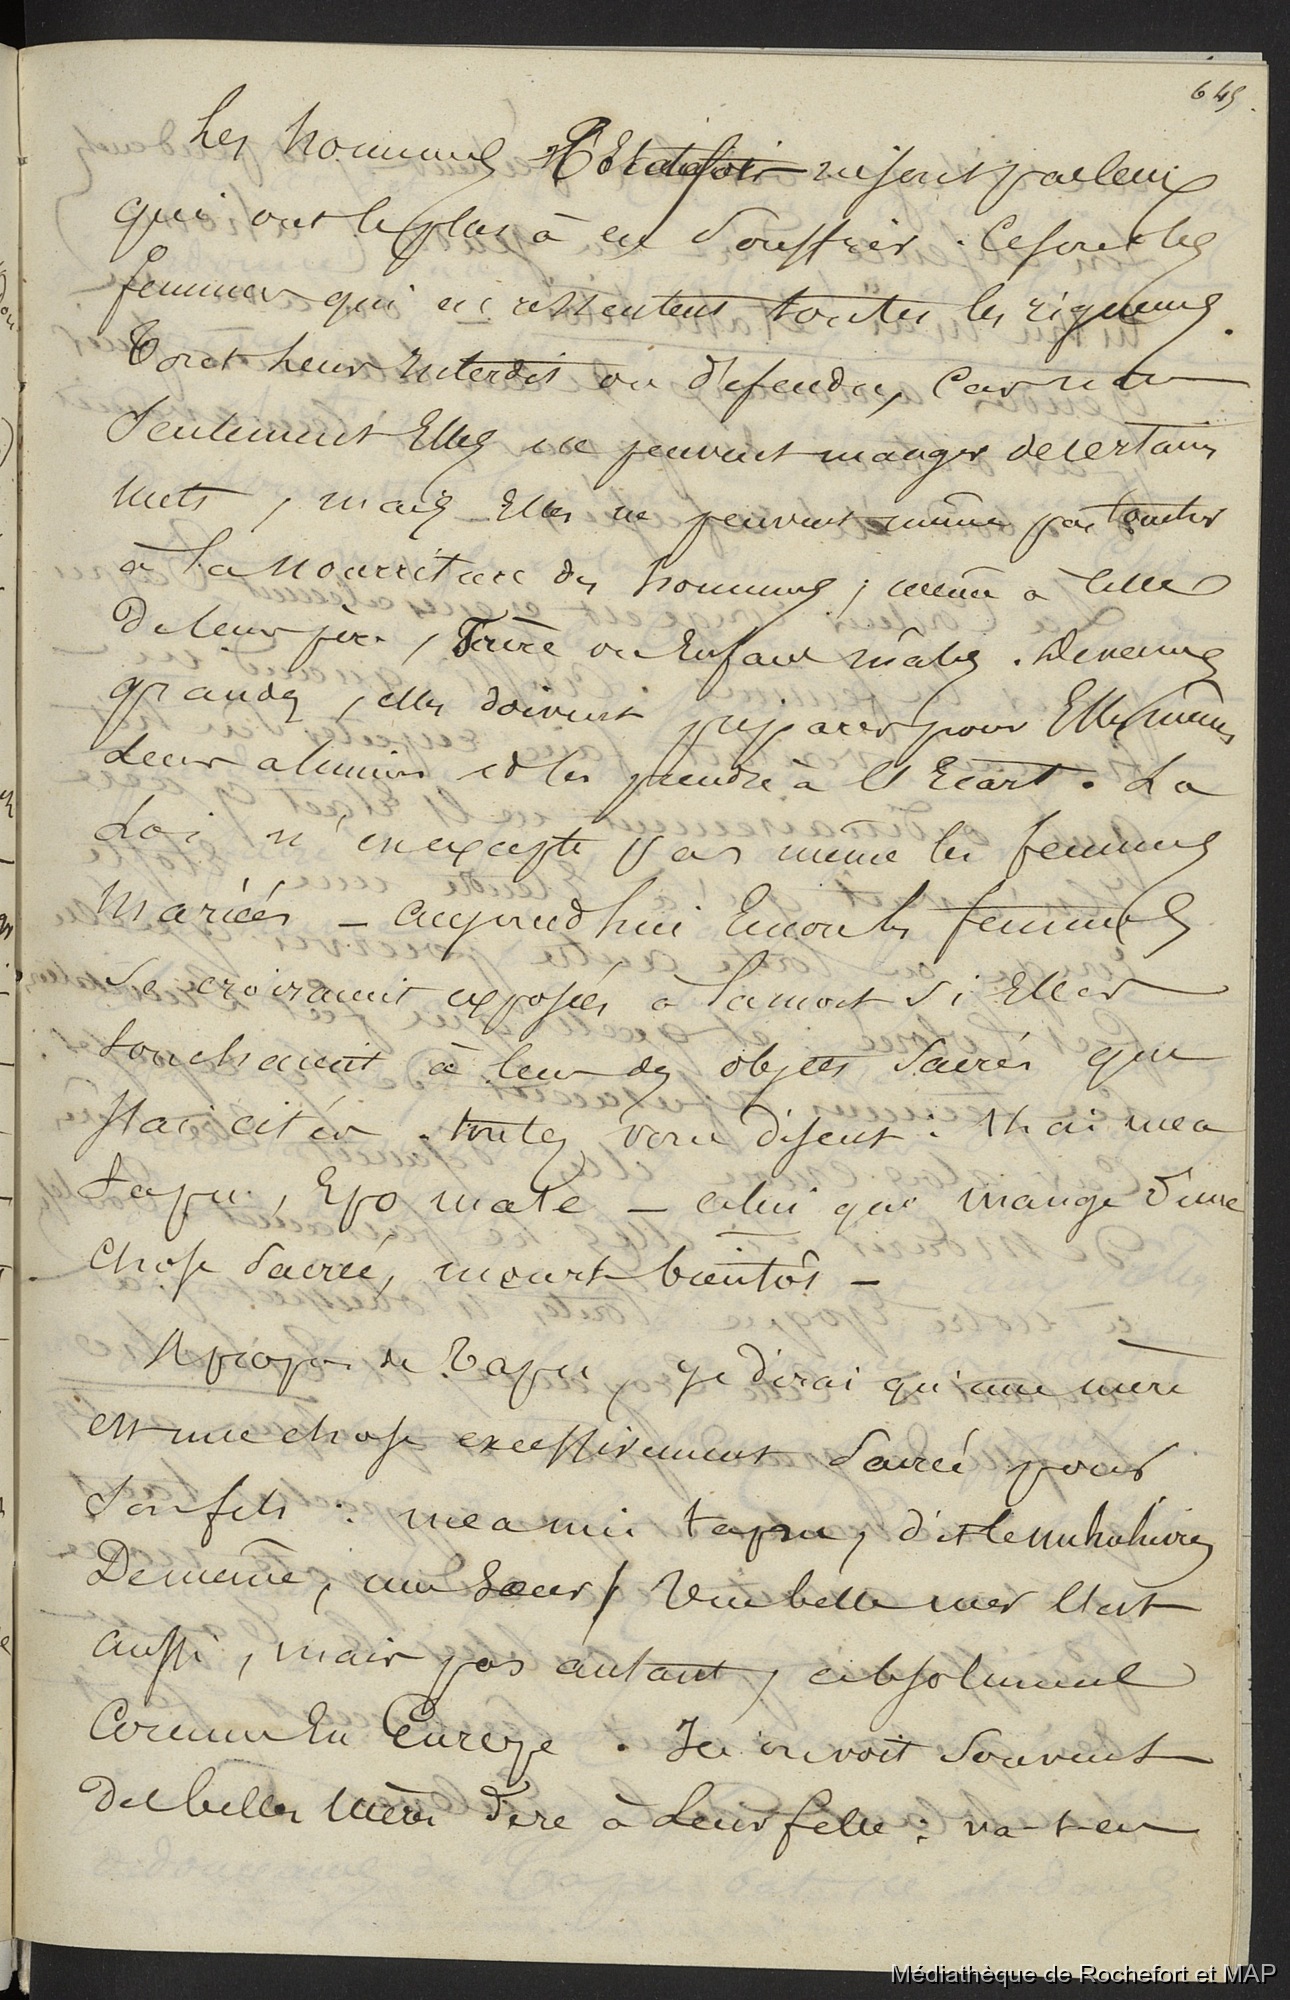 645
Les hommes Toutefois ne sont pas ceux
qui ont le plus à en Souffrir. Ce sont les
femmes qui en ressentent toutes les rigueurs.
Tout leur Interdit ou défendu, Car non
Seulement Elles ne peuvent manger de certains
Mets, mais Elles ne peuvent même pas toucher
à la Nourriture des hommes, même à celle
De leur père, frère ou Enfant mâles. Devenues
grandes, elles doivent préparer pour Elles mêmes
Leurs aliments et les prendre à l'Ecart. La
Loi n'en excepte pas même les femmes
Mariées - aujourd'hui Encore les femmes
Se croiraient exposées à la mort Si Elles
touchaient à l'un des objets Sacrés que
J'ai cités. toutes vous disent: Kai mea
Tapu, Epo mate - celui qui mange d'une
Chose Sacrée, meurt bientôt -
A propos de Tapu, je dirai qu'une mère
est une chose excessivement Sacrée pour
Son fils: mea nui tapu, dit le nukuhivien
De même, une Sœur / Une belle mère l'est
aussi, mais pas autant, absolument
Comme En Europe. Ici on voit Souvent
Des belles Mères dire à Leur fille: va-t-en
Médiathèque de Rochefort et MAP